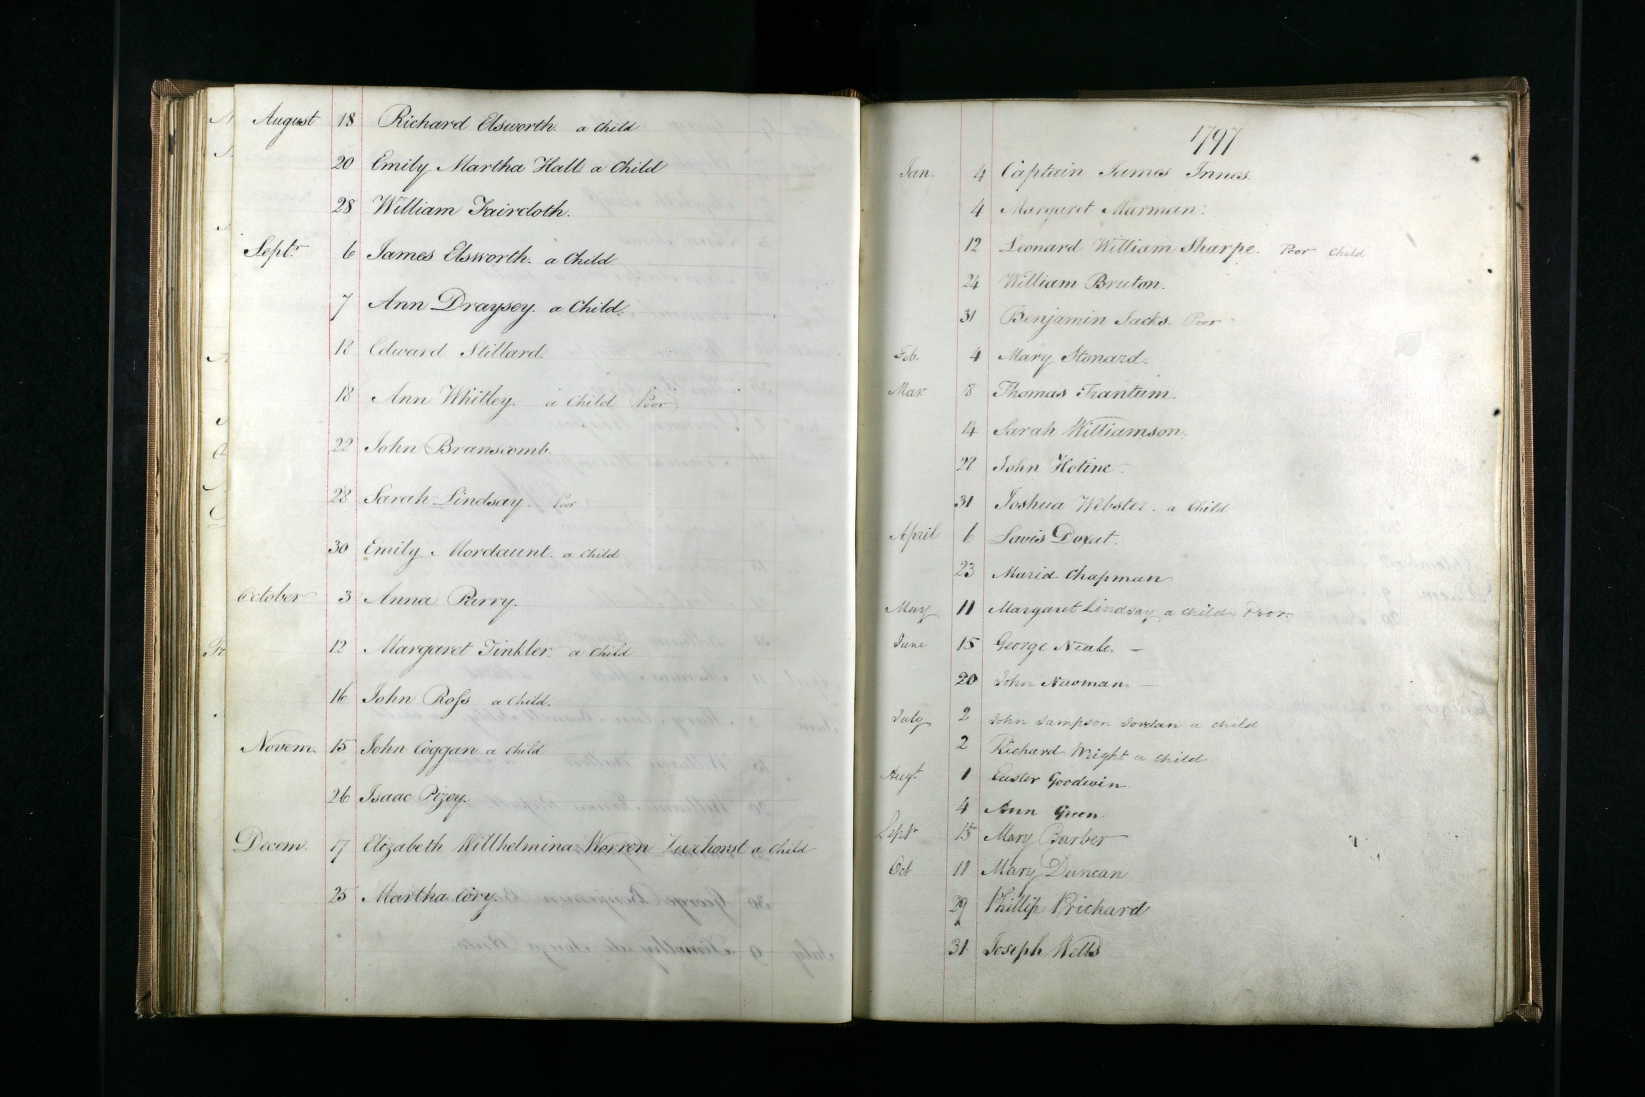 August 18 Richard Elsworth. a Child
20 Emily Martha Hall a Child
28 William Faircloth.
Septr. 6 James Elsworth. a Child
7 Ann Draysey. a Child.
Edward Stillard.
18 Ann Whitley. a Child Poor
22 John Branscomb
28 Sarah Lindsay. Poor
30 Emily Mordaunt. a Child
October 3 Anna Perry.
12 Margaret Tinkler. a Child
16 John Ross a Child.
Novem. 15 John Coggan a Child
26 Isaac
Decem. 17 Elizabeth Willhelmina Warren a Child
25 Martha Cory.
1797
Jan. 4 Captain James Innes.
4 Margaret Marman.
12 Leonard William Sharpe. Poor Child
24 William Bruton.
31 Benjamin Jacks. Poor
Feb. 4 Mary Stonard.
Mar 8 Thomas Frantum.
14 Sarah Williamson.
John Hotine
31 Joshua Webster. a Child
April 6 Lewis Doxat.
23 Maria Chapman
May 11 Margaret Lindsay a child Poor
June 15 George Neale. —
20 John Naoman. —
July 2 John Sampson Jordan a child
2 Richard Wright a child
Augt. 1 Easter Goodwin
4 Ann Green
Septr 15 Mary Barber
Oct 11 Mary Duncan
29 Phillip Prichard
31 Joseph Wells